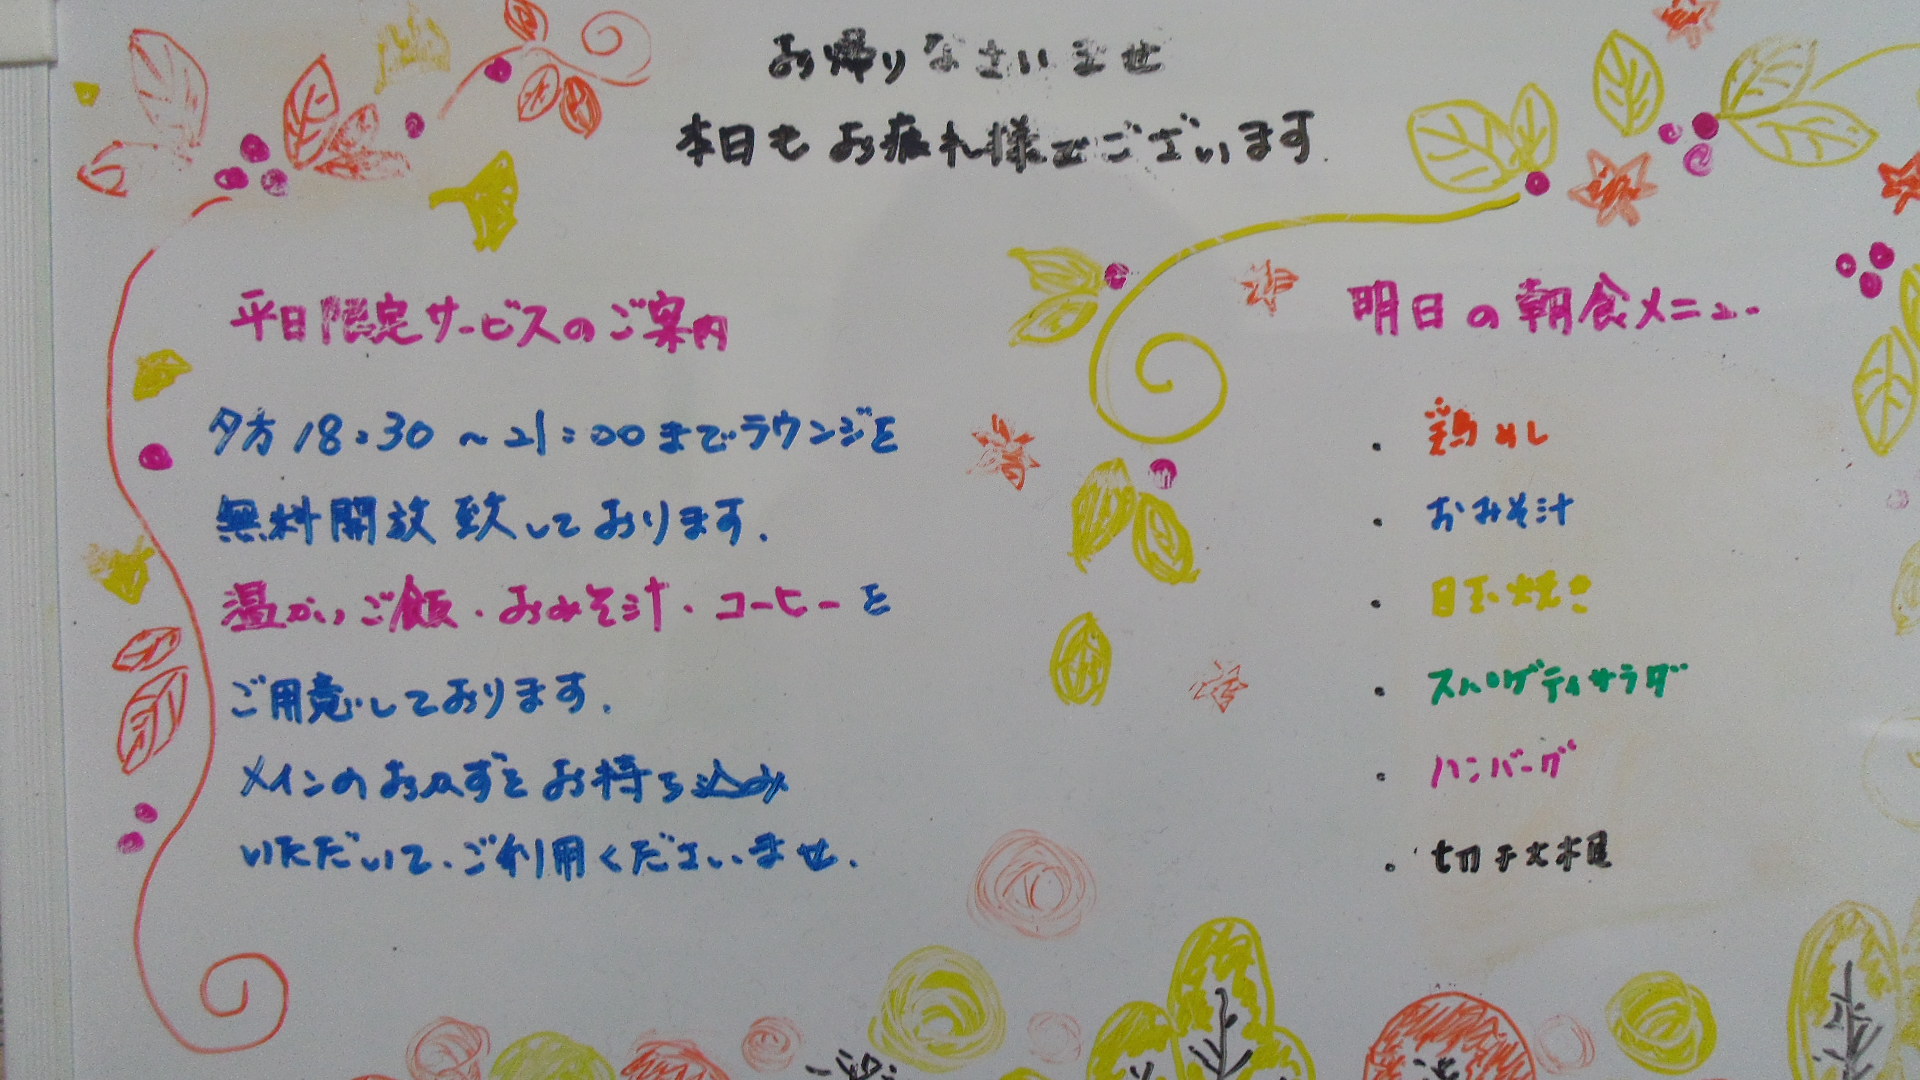 お帰りなさいませ
本日もお疲れ様でございます.
平日限定サービスのご案内
夕方18:30~21:00までラウンジを
無料開放致しております.
温かいご飯・おみそ汁・コーヒーを
ご用意しております.
メインのおかずをお持ち込み
いただいて、ご利用くださいませ.
明日の朝食メニュー
・鶏めし
・おみそ汁
・目玉焼き
・スパゲティサラダ
・ハンバーグ
・切干大根